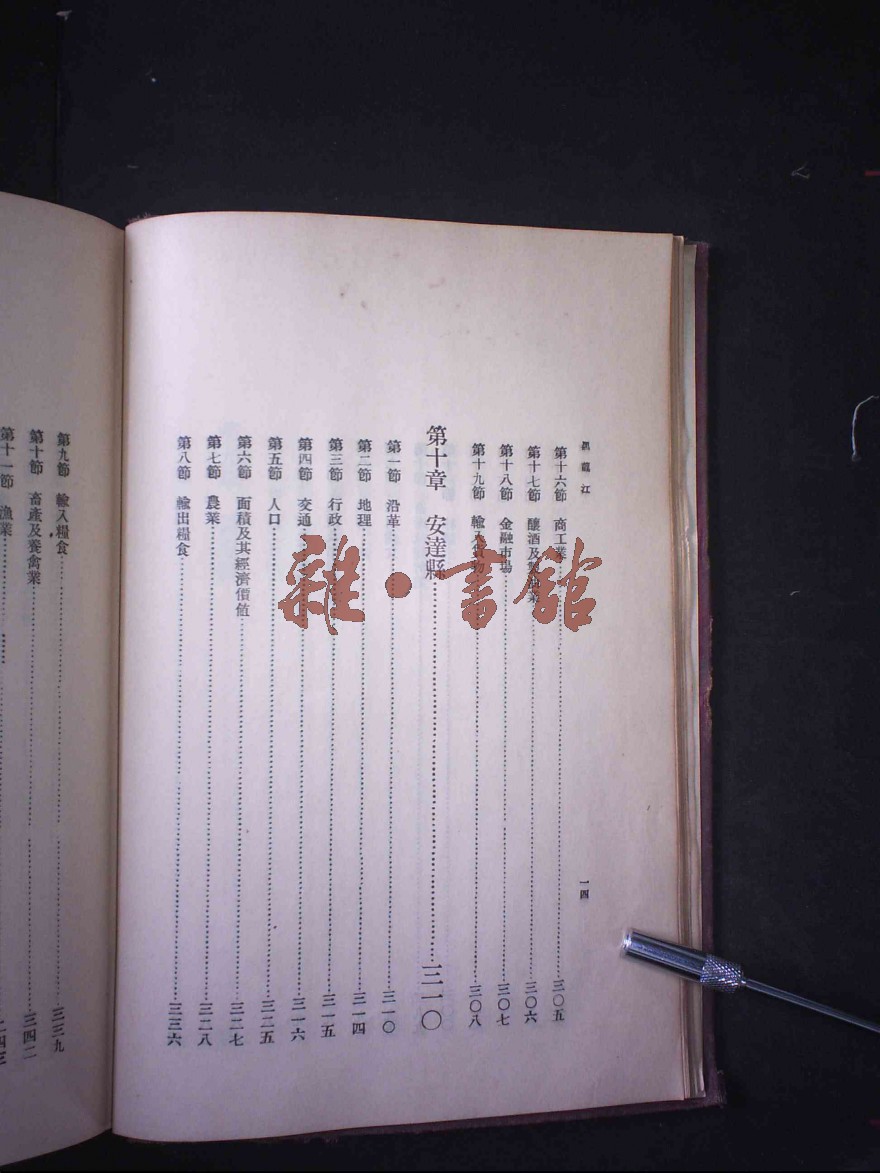 黑龍江
一四
第十六節 商工業 三〇五
第十七節 釀酒及製油業 三〇六
第十八節 金融市場 三〇七
第十九節 輸入貨物 三〇八
第十章 安達縣 三一〇
第一節 沿革 三一〇
第二節 地理 三一四
第三節 行政 三一五
第四節 交通 三一六
第五節 人口 三二五
第六節 面積及其經濟價値 三二七
第七節 農業 三二八
第八節 輸出糧食 三三六
第九節 輸入糧食 三三九
第十節 畜產及養禽業 三四二
第十一節 漁業
雜·書館